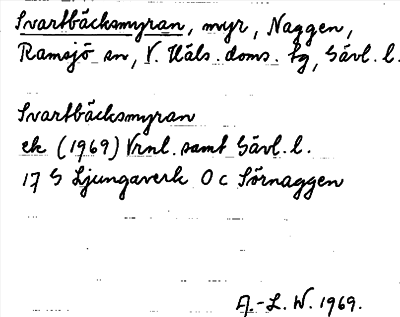 Svartbäcksmyran, myr, Naggen,
Ramsjö sn, V. Häls. doms. tg, Gävl. l.
Svartbäcksmyran
ek (1969) Vrnl. samt Gävl. l.
17 G Ljungaverk 0 c Sörnaggen
A.-L. W. 1969.